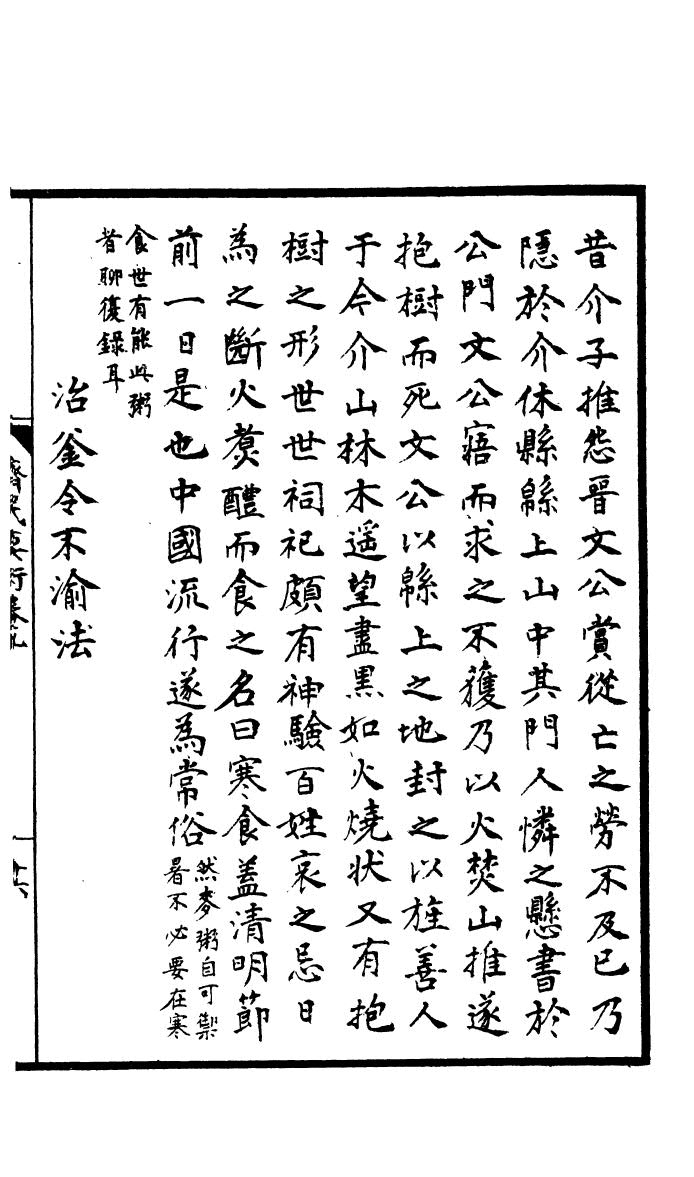 昔介子推怨晉文公賞從亡之勞不及已乃
隱於介休縣緜上山中其門人憐之懸書於
公門文公寤而求之不獲乃以火焚山推遂
抱樹而死文公以緜上之地封之以旌善人
于今介山林木遥望盡黒如火燒状又有抱
樹之形世世祠祀頗有神驗百姓哀之忌日
為之斷火煑醴而食之名曰寒食盖清明節
前一日是也中國流行遂為常俗
然麥粥自可禦
暑不必要在寒
食世有能此粥
者聊復錄耳
治釜令不渝法
齊民要術卷九